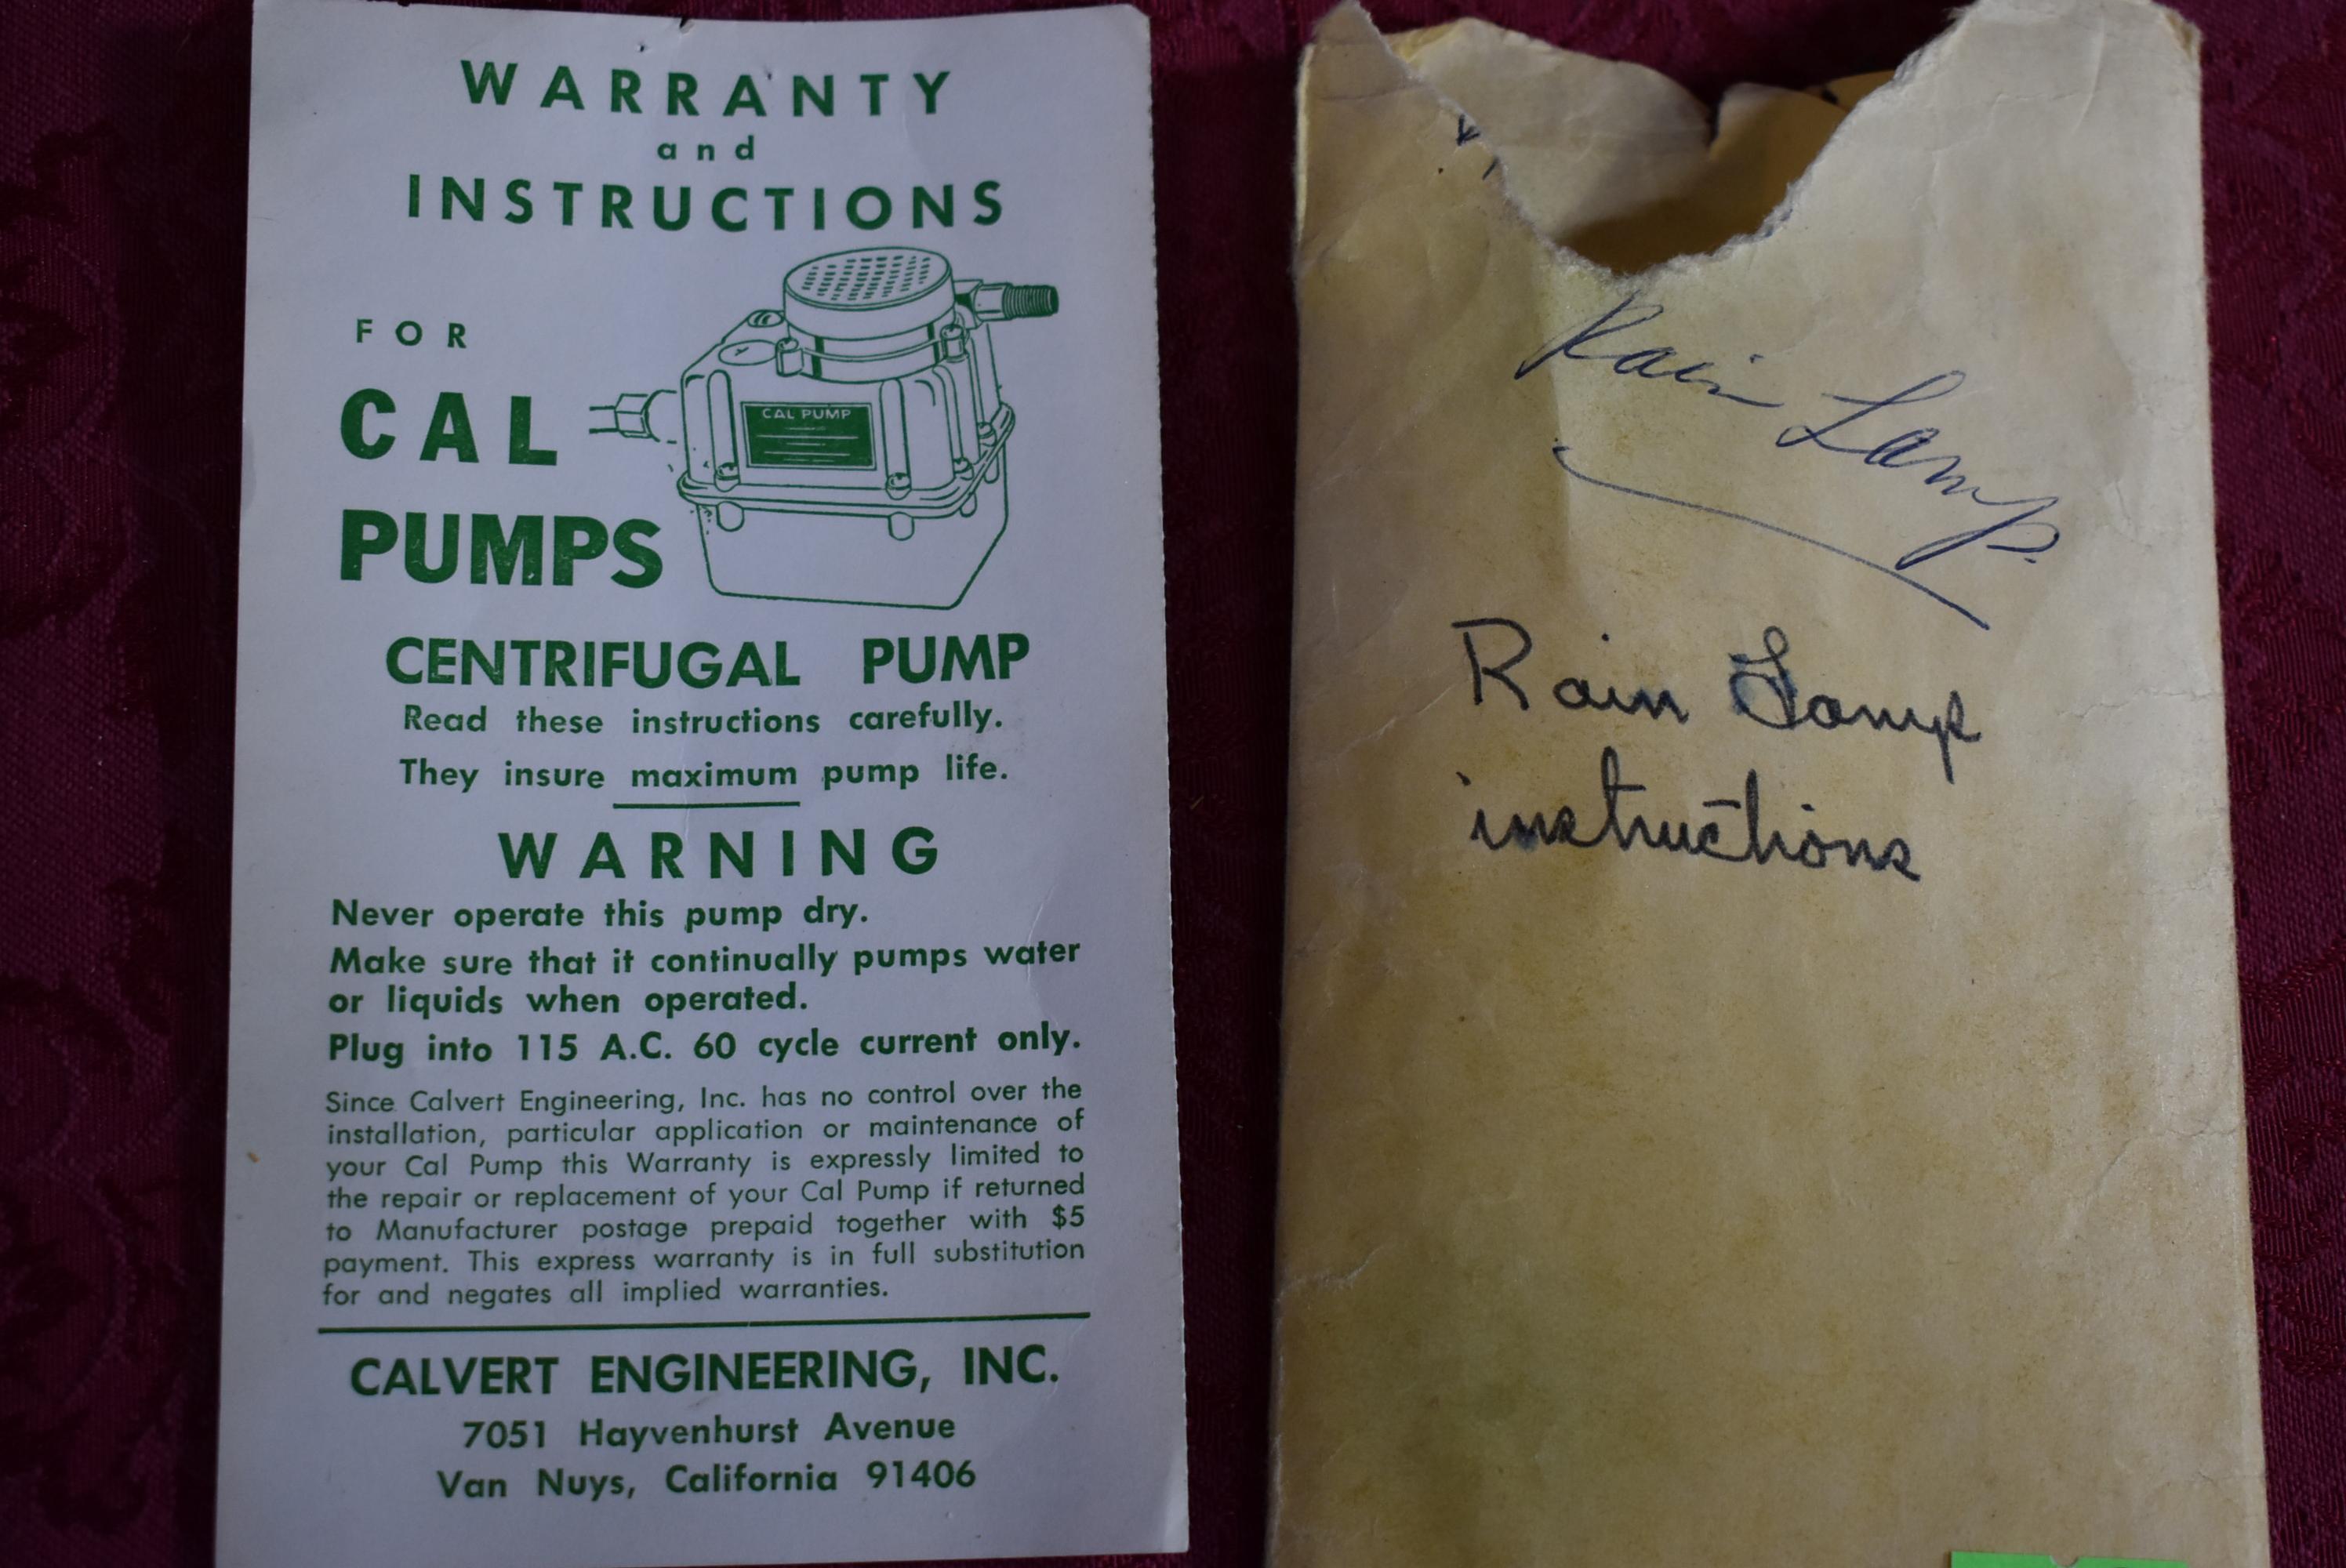 WARRANTY
and
INSTRUCTIONS
FOR
CAL
PUMPS
CAL PUMP
CENTRIFUGAL PUMP
Read these instructions carefully.
They insure maximum pump life.
WARNING
Never operate this pump dry.
Make sure that it continually pumps water
or liquids when operated.
Plug into 115 A.C. 60 cycle current only.
Since Calvert Engineering, Inc. has no control over the
installation, particular application or maintenance of
your Cal Pump this Warranty is expressly limited to
the repair or replacement of your Cal Pump if returned
to Manufacturer postage prepaid together with $5
payment. This express warranty is in full substitution
for and negates all implied warranties.
CALVERT ENGINEERING, INC.
7051 Hayvenhurst Avenue
Van Nuys, California 91406
Rain Lamp.
Rain Lamp
instructions